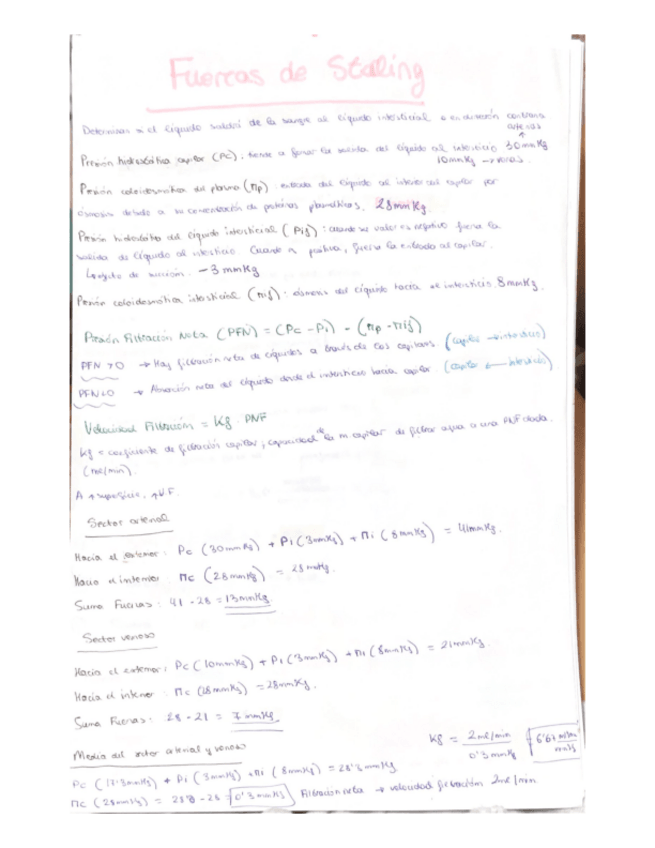 Fuerzas de Staling
Determinan si el líquido saldrá de la sangre al líquido intersticial o en dirección contraria
arterias
Presión hidrostática capilar (Pc): tiende a forzar la salida del líquido al intersticio 30 mmHg
10 mmHg → venas.
Presión coloidosmótica del plasma (πp): entrada del líquido al interior del capilar por
ósmosis debido a su concentración de proteínas plasmáticas. 28 mmHg.
Presión hidrostática del líquido intersticial (Pif): cuando su valor es negativo fuerza la
salida de líquido al intersticio. Cuando es positiva, fuerza la entrada al capilar.
↳ efecto de succión. -3 mmHg
Presión coloidosmótica intersticial (πif): ósmosis del líquido hacia el intersticio. 8 mmHg.
Presión Filtración Neta (PFN) = (Pc - Pi) - (πp - πif)
PFN > 0 → Hay filtración neta de líquidos a través de los capilares. (capilar → intersticio)
PFN < 0 → Absorción neta del líquido desde el intersticio hacia capilar. (capilar ← intersticio)
Velocidad Filtración = Kf · PNF
Kf = coeficiente de filtración capilar; capacidad de la m. capilar de filtrar agua a una PNF dada.
(ml/min).
A ↑ superficie, ↑ V.F.
Sector arterial
Hacia el exterior: Pc (30 mmHg) + Pi (3 mmHg) + πi (8 mmHg) = 41 mmHg.
Hacia el interior: πc (28 mmHg) = 28 mmHg.
Suma Fuerzas: 41 - 28 = 13 mmHg
Sector venoso
Hacia el exterior: Pc (10 mmHg) + Pi (3 mmHg) + πi (8 mmHg) = 21 mmHg.
Hacia el interior: πc (28 mmHg) = 28 mmHg.
Suma Fuerzas: 28 - 21 = 7 mmHg
Media del sector arterial y venoso
Kf = 2 ml/min / 0'3 mmHg = 6'67 ml/min / mmHg
Pc (17'3 mmHg) + Pi (3 mmHg) + πi (8 mmHg) = 28'3 mmHg
πc (28 mmHg) = 28'3 - 28 = 0'3 mmHg Filtración neta → velocidad filtración 2 ml/min